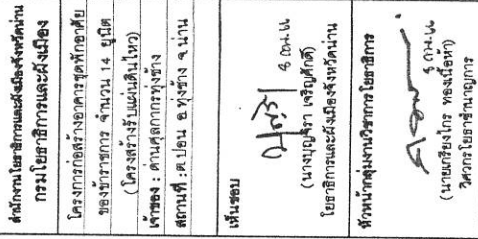 สำนักงานโยธาธิการและผังเมืองจังหวัดน่าน
กรมโยธาธิการและผังเมือง
โครงการก่อสร้างอาคารชุดพักอาศัย
ของข้าราชการ จำนวน 14 ยูนิต
(โครงสร้างรับแผ่นดินไหว)
เจ้าของ : ด่านศุลกากรทุ่งช้าง
สถานที่ : ต.ปอน อ.ทุ่งช้าง จ.น่าน
เห็นชอบ
8 ต.ค. 64
(นางปุญจิรา เจริญศักดิ์)
โยธาธิการและผังเมืองจังหวัดน่าน
หัวหน้ากลุ่มงานวิชาการโยธาธิการ
(นายเกรียงไกร ทองเนื้อห้า)
วิศวกรโยธาชำนาญการ